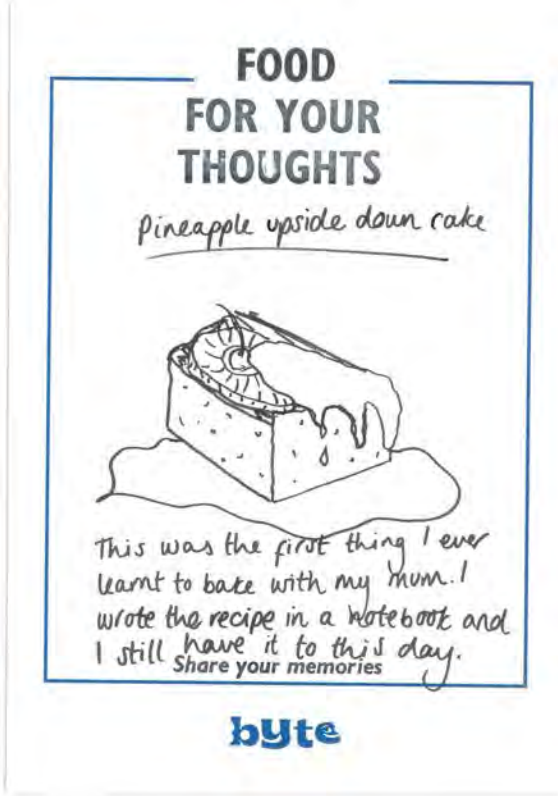 FOOD
FOR YOUR
THOUGHTS
Pineapple upside down cake
This was the first thing I ever
learnt to bake with my mum. I
wrote the recipe in a notebook and
I still have it to this day.
Share your memories
byte